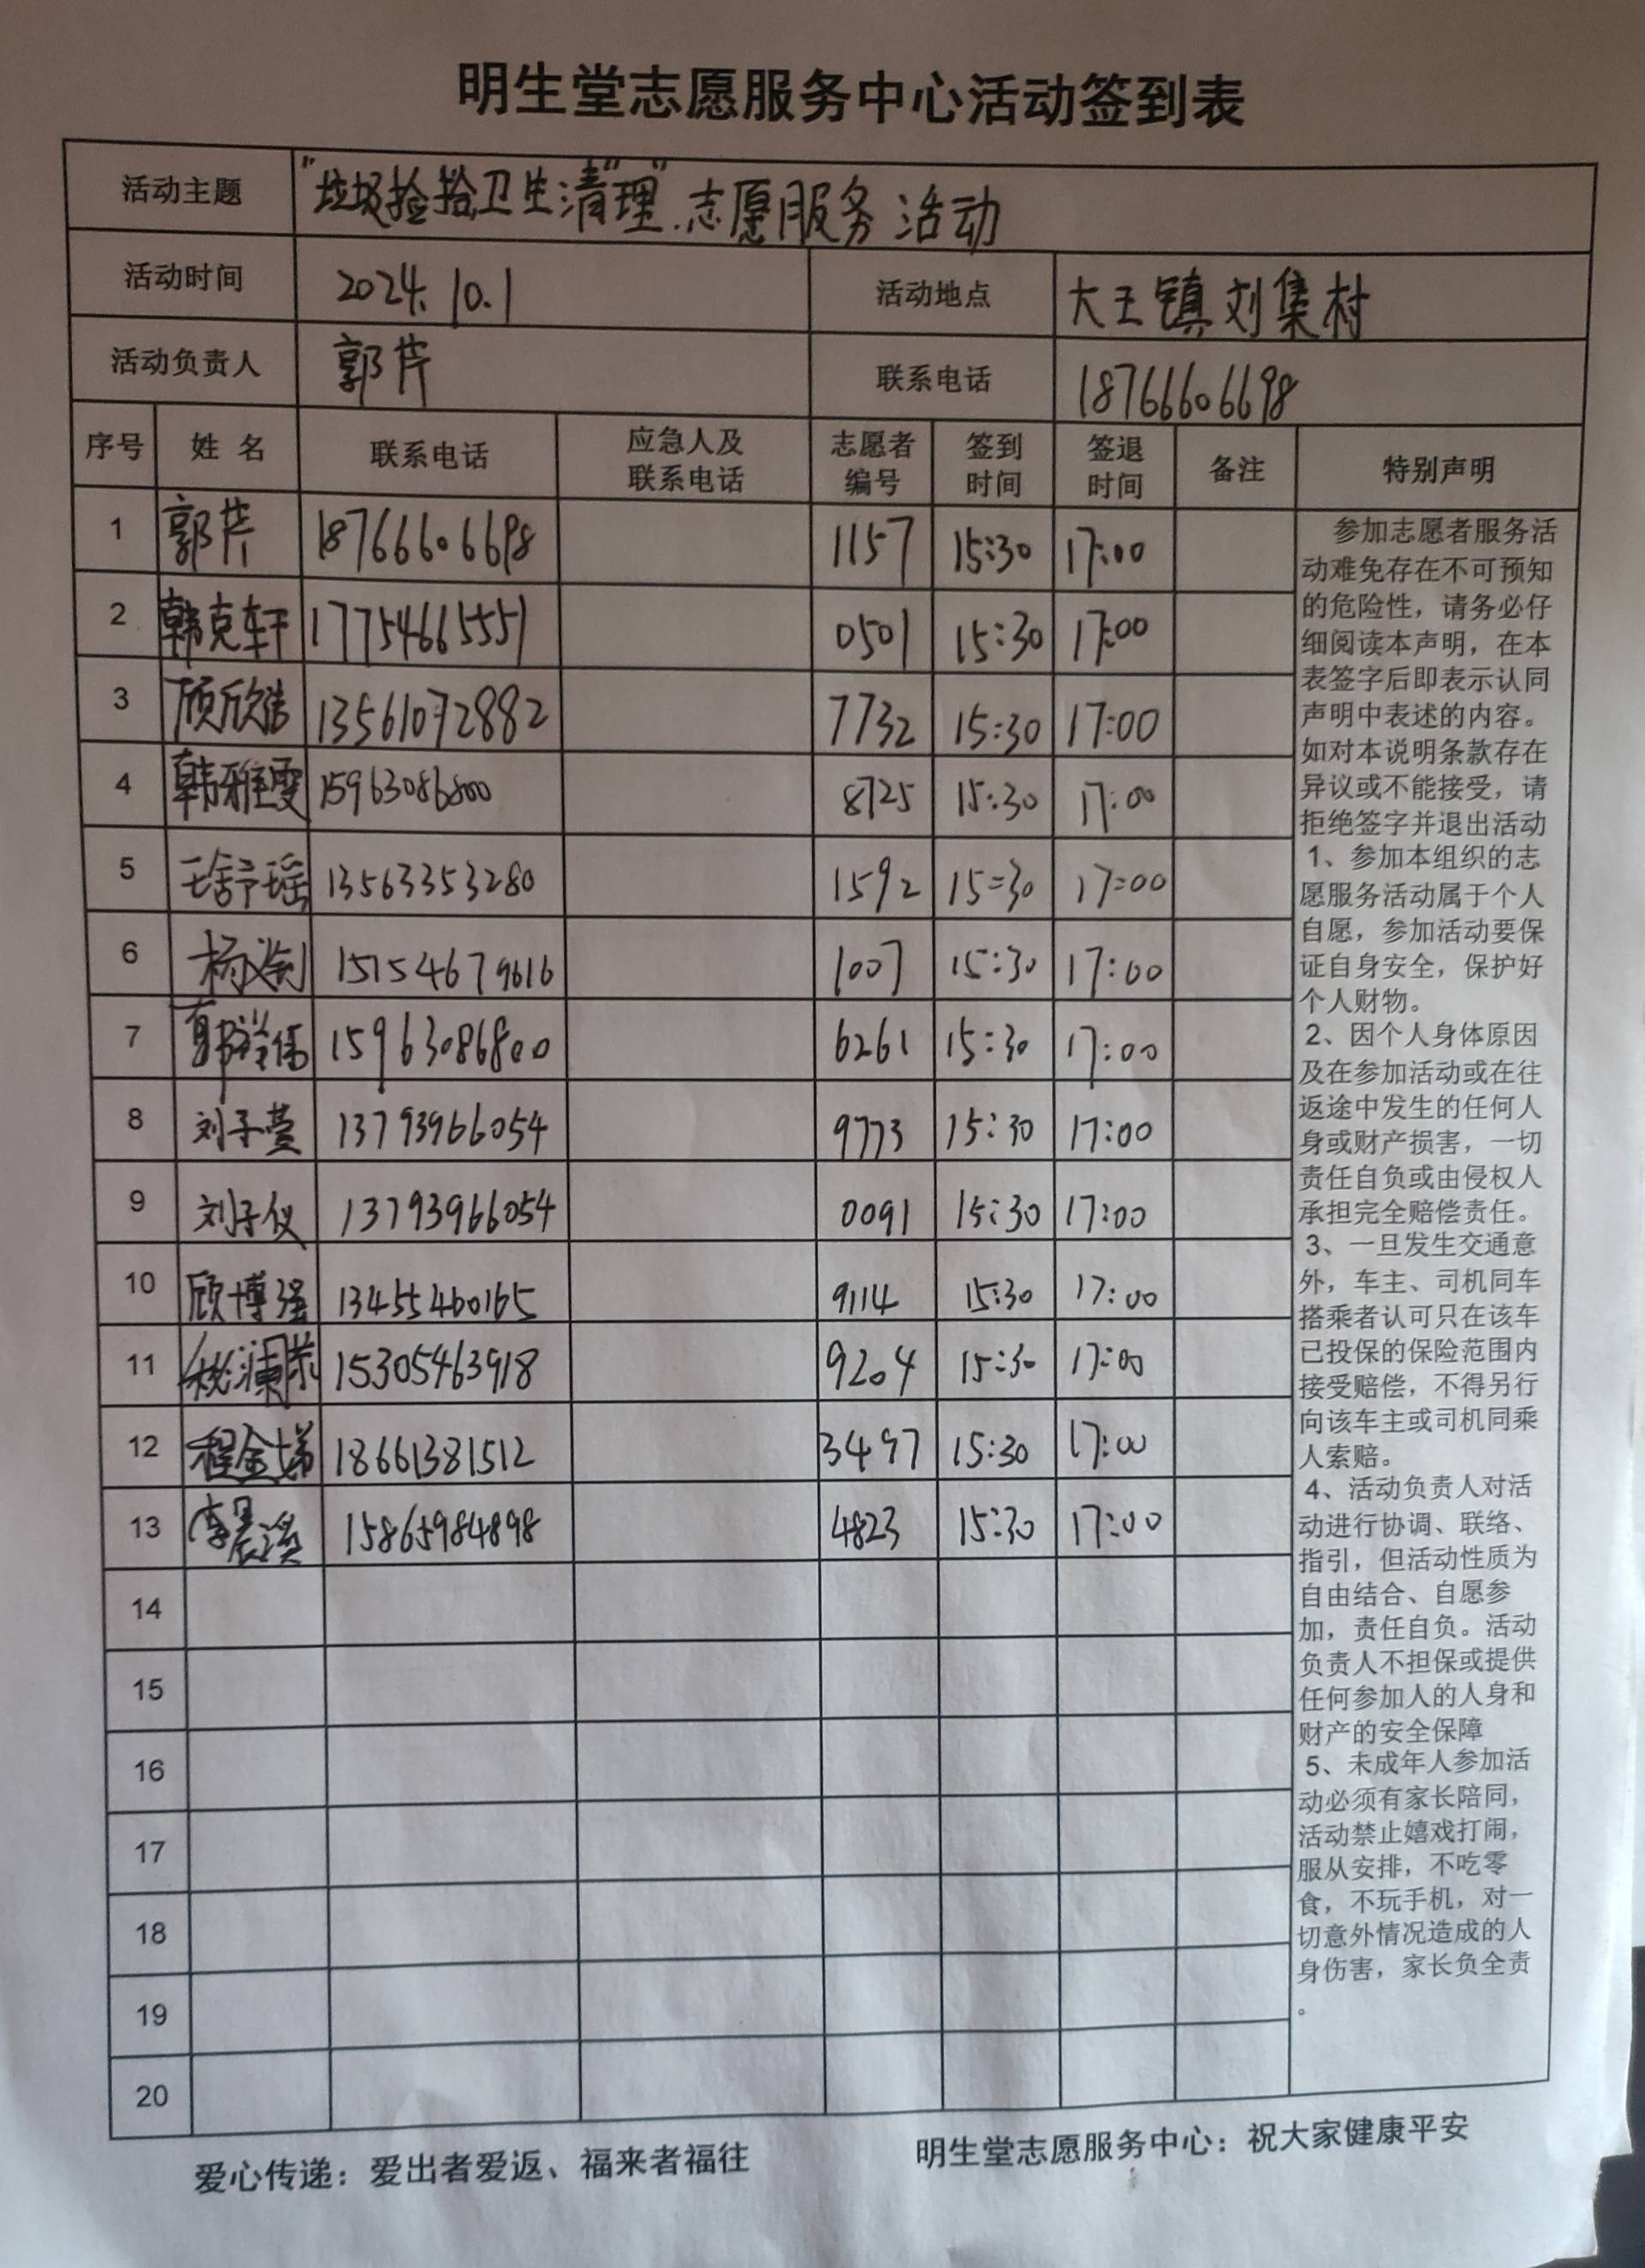 明生堂志愿服务中心活动签到表
活动主题 "垃圾捡拾卫生清"理".志愿服务活动
活动时间 2024.10.1 活动地点 大王镇刘集村
活动负责人 郭芹 联系电话 18766606698
序号 姓名 联系电话 应急人及联系电话 志愿者编号 签到时间 签退时间 备注 特别声明
1 郭芹 18766606698 1157 15:30 17:00
2 韩克轩 17754665551 0501 15:30 17:00
3 顾欣浩 13561072882 7732 15:30 17:00
4 韩雅雯 15963086800 8725 15:30 17:00
5 王舒瑶 13563353280 1592 15:30 17:00
6 15154679616 1007 15:30 17:00
7 15963086800 6261 15:30 17:00
8 刘子萱 13793966054 9773 15:30 17:00
9 刘子仪 13793966054 0091 15:30 17:00
10 顾博强 13455460165 9114 15:30 17:00
11 15305463918 9204 15:30 17:00
12 程金娣 18661381512 3497 15:30 17:00
13 15865984898 4823 15:30 17:00
14
15
16
17
18
19
20
参加志愿者服务活
动难免存在不可预知
的危险性，请务必仔
细阅读本声明，在本
表签字后即表示认同
声明中表述的内容。
如对本说明条款存在
异议或不能接受，请
拒绝签字并退出活动
1、参加本组织的志
愿服务活动属于个人
自愿，参加活动要保
证自身安全，保护好
个人财物。
2、因个人身体原因
及在参加活动或在往
返途中发生的任何人
身或财产损害，一切
责任自负或由侵权人
承担完全赔偿责任。
3、一旦发生交通意
外，车主、司机同车
搭乘者认可只在该车
已投保的保险范围内
接受赔偿，不得另行
向该车主或司机同乘
人索赔。
4、活动负责人对活
动进行协调、联络、
指引，但活动性质为
自由结合、自愿参
加，责任自负。活动
负责人不担保或提供
任何参加人的人身和
财产的安全保障
5、未成年人参加活
动必须有家长陪同，
活动禁止嬉戏打闹，
服从安排，不吃零
食，不玩手机，对一
切意外情况造成的人
身伤害，家长负全责
。
爱心传递：爱出者爱返、福来者福往 明生堂志愿服务中心：祝大家健康平安